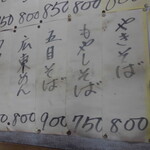 850
800
850
800
やきそば
もやしそば
五目そば
広東めん
800
750
900
800